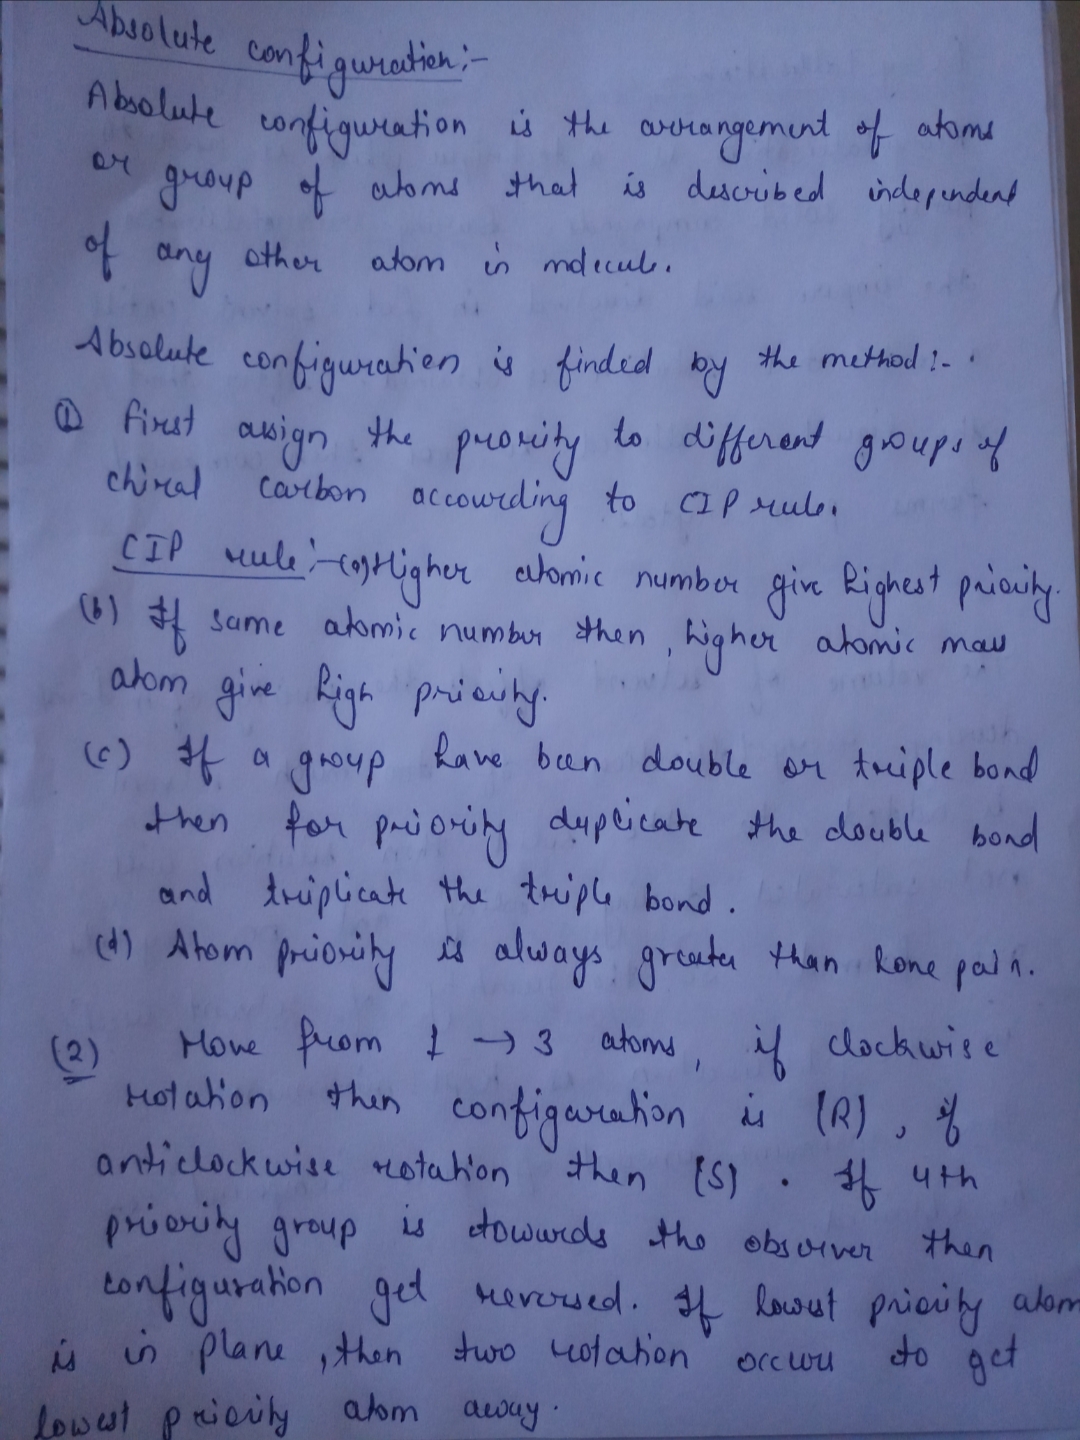 Absolute configuration:-
Absolute configuration is the arrangement of atoms
or group of atoms that is described independent
of any other atom in molecule.
Absolute configuration is finded by the method:-
① First assign the prority to different groups of
chiral carbon according to CIP rule.
CIP rule:-(a) Higher atomic number give highest priority.
(b) If same atomic number then, higher atomic mass
atom give high priority.
(c) If a group have been double or triple bond
then for priority duplicate the double bond
and triplicate the triple bond.
(d) Atom priority is always greater than lone pair.
(2) Move from 1 → 3 atoms, if clockwise
rotation then configuration is (R), if
anticlockwise rotation then (S). If 4th
priority group is towards the observer then
configuration get reversed. If lowest priority atom
is in plane, then two rotation occurr to get
lowest priority atom away.